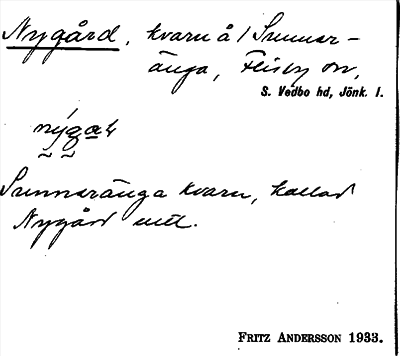 Nygård, kvarn å / Sunner-
änga, Flisby sn,
S. Vedbo hd, Jönk. l.
nýgaɫ
Sunneränga kvarn, kallad
Nygård
FRITZ ANDERSSON 1933.